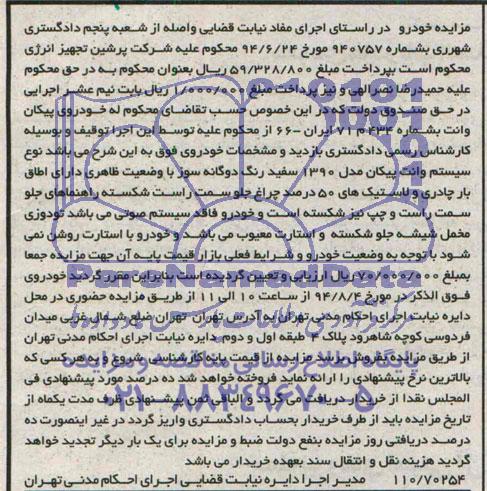 مزایده خودرو در راستای اجرای مفاد نیابت قضایی واصله از شعبه پنجم دادگستری
شهرری بشماره ۹۴۰۷۵۷ مورخ ۹۴/۶/۲۴ محکوم علیه شرکت پرشین تجهیز انرژی
محکوم است بپرداخت مبلغ ۵۹/۳۲۸/۸۰۰ ریال بعنوان محکوم به در حق محکوم
علیه حمیدرضا نصرالهی و نیز پرداخت مبلغ ۱/۰۰۰/۰۰۰ ریال بابت نیم عشر اجرایی
در حق صندوق دولت که در این خصوص حسب تقاضای محکوم له خودروی پیکان
وانت بشماره ۴۳۴ م ۷۱ ایران -۶۶ از محکوم علیه توسط این اجرا توقیف و بوسیله
کارشناس رسمی دادگستری بازدید و مشخصات خودروی فوق به این شرح می باشد نوع
سیستم وانت پیکان مدل ۱۳۹۰ سفید رنگ دوگانه سوز با وضعیت ظاهری دارای اطاق
بار چادری و لاستیک های ۵۰ درصد چراغ جلو سمت راست شکسته راهنماهای جلو
سمت راست و چپ نیز شکسته است و خودرو فاقد سیستم صوتی می باشد تودوزی
مخمل شیشه جلو شکسته و استارت معیوب می باشد و خودرو با استارت روشن نمی
شود با توجه به وضعیت خودرو و شرایط فعلی بازار قیمت پایه آن جهت مزایده جمعا
بمبلغ ۷۰/۰۰۰/۰۰۰ ریال ارزیابی و تعیین گردیده است بنابراین مقرر گردید خودروی
فوق الذکر در مورخ ۹۴/۸/۴ از ساعت ۱۰ الی ۱۱ از طریق مزایده حضوری در محل
دایره نیابت اجرای احکام مدنی تهران به آدرس تهران تهران ضلع شمال غربی میدان
فردوسی کوچه شاهرود پلاک ۴ طبقه اول و دوم دایره نیابت اجرای احکام مدنی تهران
از طریق مزایده بفروش برسد مزایده از قیمت پایه کارشناسی شروع و به هر کسی که
بالاترین نرخ پیشنهادی را ارائه نماید فروخته خواهد شد ده درصد مورد پیشنهادی فی
المجلس نقدا از خریدار دریافت می گردد و الباقی ثمن پیشنهادی ظرف مدت یکماه از
تاریخ مزایده باید از طرف خریدار بحساب دادگستری واریز گردد در غیر اینصورت ده
درصد دریافتی روز مزایده بنفع دولت ضبط و مزایده برای یک بار دیگر تجدید خواهد
گردید هزینه نقل و انتقال سند بعهده خریدار می باشد
۱۱۰/۷۰۲۵۴ مدیر اجرا دایره نیابت قضایی اجرای احکام مدنی تهران
ParsNamadData
پایگاه اطلاع رسانی مناقصه و مزایده